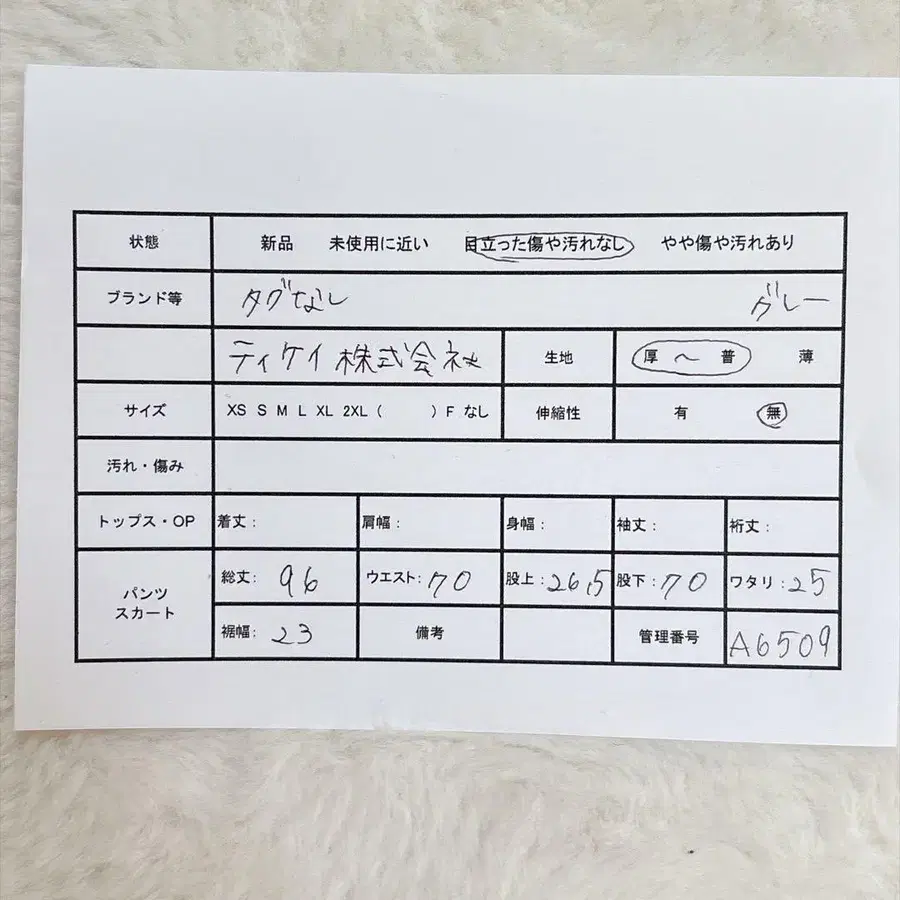 状態 新品 未使用に近い 目立った傷や汚れなし やや傷や汚れあり
ブランド等 タグなし グレー
ティケイ株式会社 生地 厚 〜 普 薄
サイズ XS S M L XL 2XL ( ) F なし 伸縮性 有 無
汚れ・傷み
トップス・OP 着丈: 肩幅: 身幅: 袖丈: 裄丈:
パンツ スカート 総丈: 96 ウエスト: 70 股上: 26.5 股下: 70 ワタリ: 25
裾幅: 23 備考 管理番号 A6509